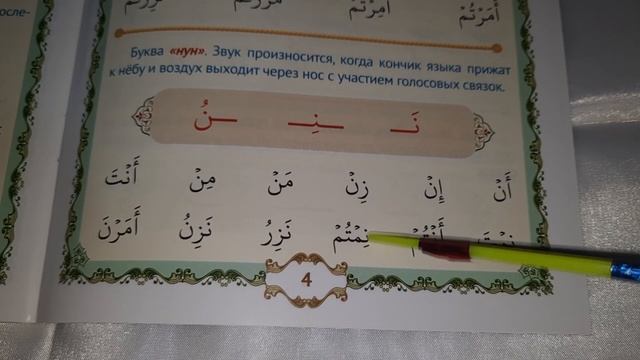 осле-
أَمَرْتُمْ أَمِرْتُمْ
Буква «нун». Звук произносится, когда кончик языка прижат
к нёбу и воздух выходит через нос с участием голосовых связок.
نَـ ـنِـ ـنُ
أَنْ إِنْ زِنْ مَنْ مِنْ أَنْتَ
نِمْتُمْ نَزِرُ نَزِنُ أَمَرْنَ
4